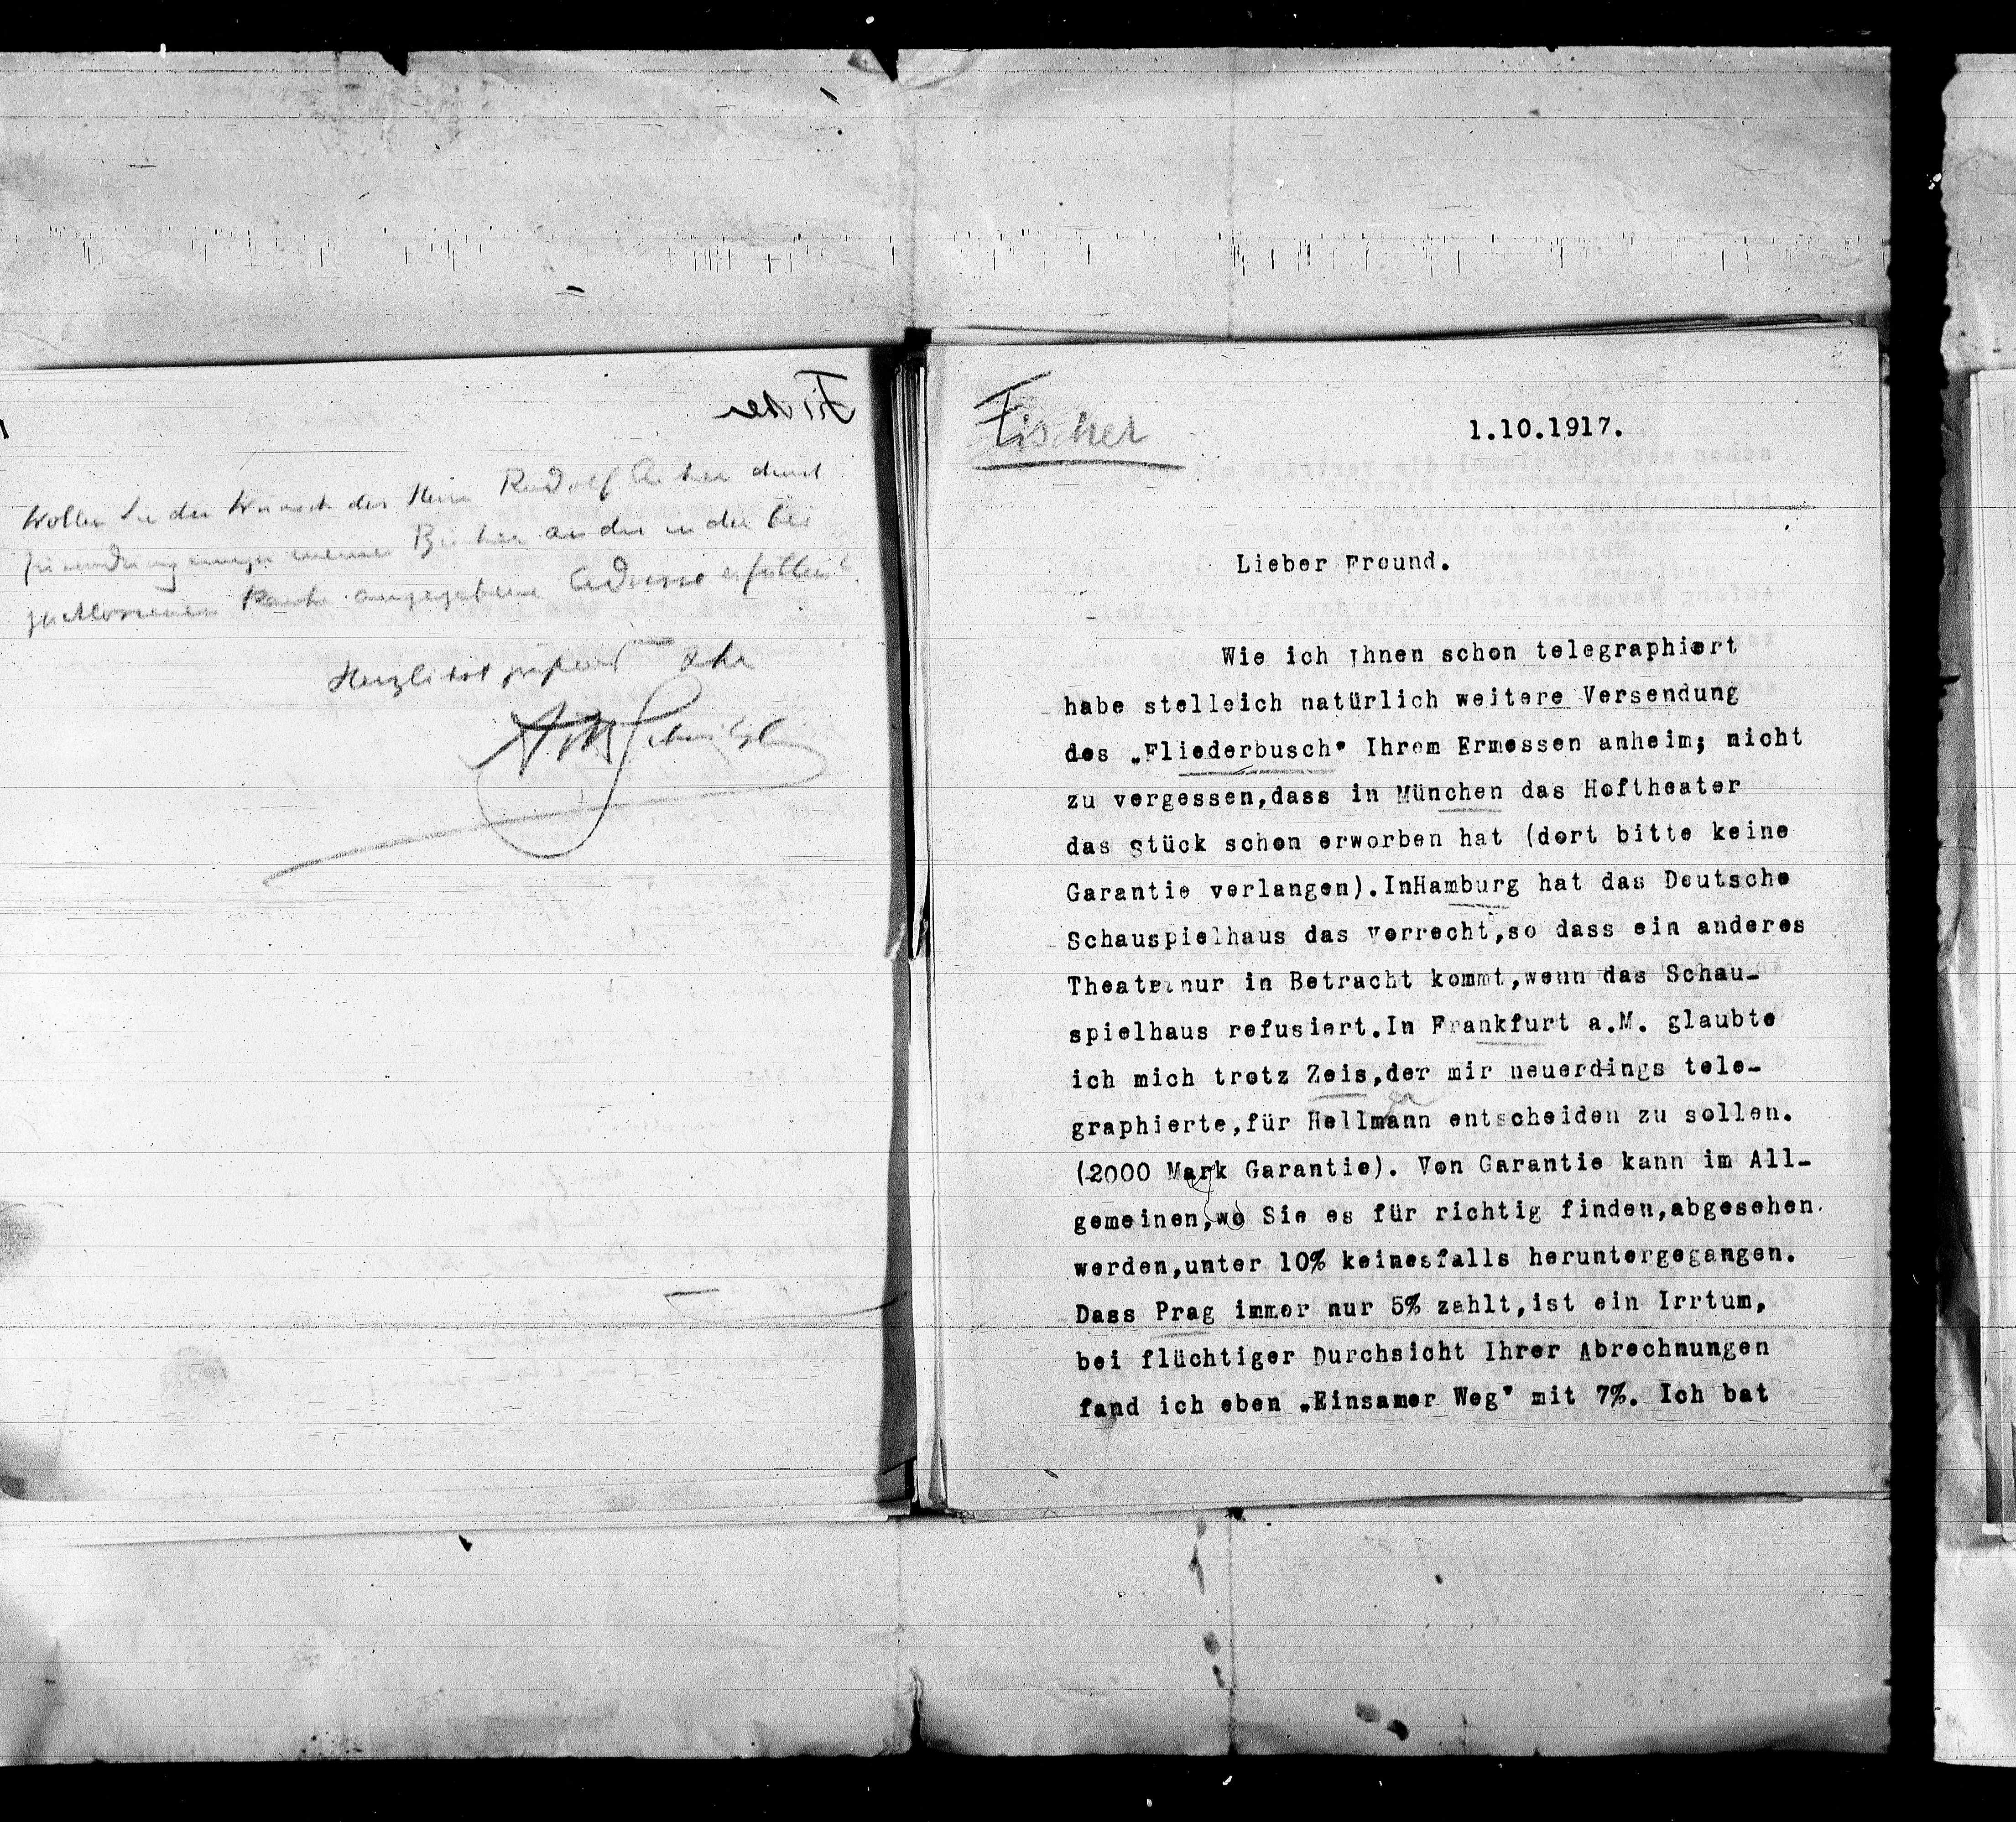 Wollen Sie den Wunsch des Herrn Rudolf durch
meiner Bücher an die in der bei
geschlossenen Karte angegebene Adresse erfüllen.
Herzlichst grüßend Ihr
Fischer
1.10.1917.
Lieber Freund.
Wie ich Ihnen schon telegraphiert
habe stelleich natürlich weitere Versendung
des „Fliederbusch" Ihrem Ermessen anheim; nicht
zu vergessen,dass in München das Hoftheater
das Stück schon erworben hat (dort bitte keine
Garantie verlangen).InHamburg hat das Deutsche
Schauspielhaus das Vorrecht,so dass ein anderes
nur in Betracht kommt,wenn das Schau-
spielhaus refusiert.In Frankfurt a.M. glaubte
ich mich trotz Zeis,der mir neuerdings tele-
graphierte,für Hellmann entscheiden zu sollen.
(2000 Mark Garantie). Von Garantie kann im All-
gemeinen,wo Sie es für richtig finden,abgesehen
werden,unter 10% keinesfalls heruntergegangen.
Dass Prag immer nur 5% zahlt,ist ein Irrtum,
bei flüchtiger Durchsicht Ihrer Abrechnungen
fand ich eben „Einsamer Weg" mit 7%. Ich bat